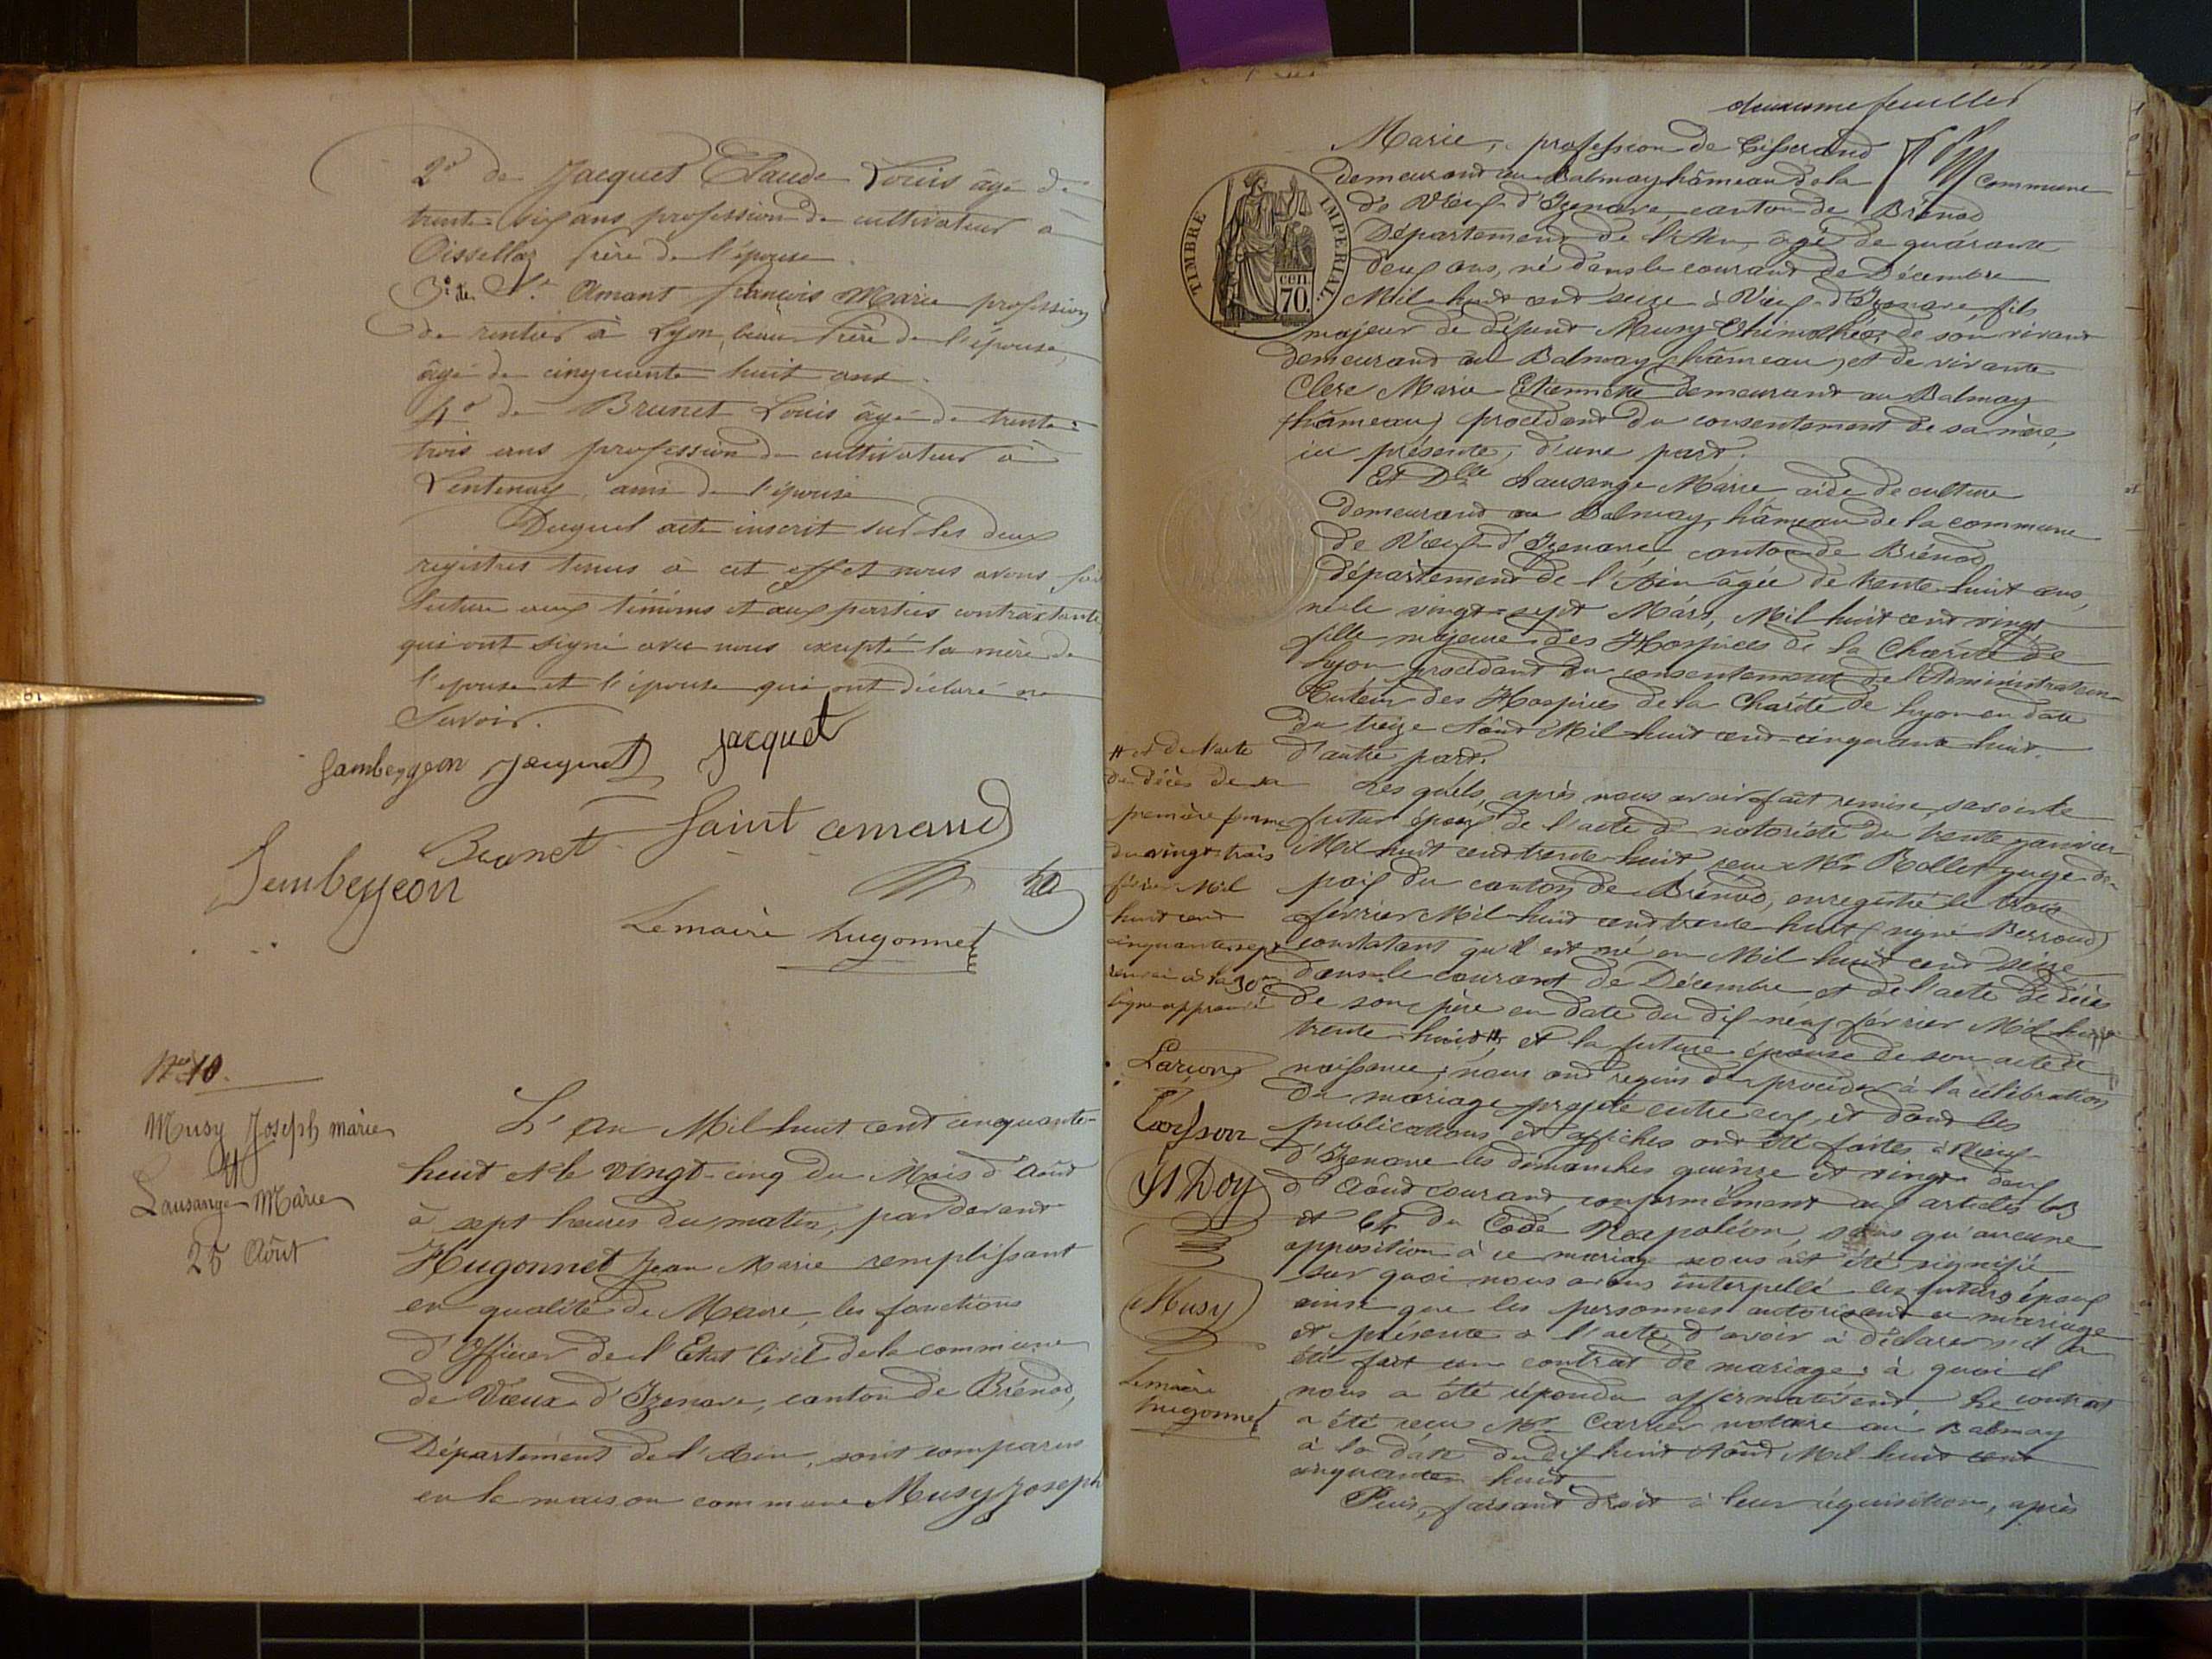 2° de Jacquet Claude Louis âgé de
trente-six ans profession de cultivateur a
Cissellaz frère de l'épouse.
3° de St. Amant françois Marie profession
de rentier à Lyon, beau frère de l'épouse,
âgé de cinquante huit ans.
4° de Brunet Louis âgé de trente-
trois ans profession de cultivateur à
Lentenay, ami de l'épouse
Duquel acte inscrit sur les deux
registres tenus à cet effet nous avons fait
lecture aux témoins et aux parties contractantes
qui ont signé avec nous excepté la mère de
l'épouse et l'épouse qui ont déclaré ne
Savoir.
Jambeyjeon Jacquet Jacquet
Brunet Saint amand
Jambeyjeon
Le maire hugonnet
N° 10.
Musy Joseph marie
et
Lausange Marie
25 Août
L'An Mil huit cent cinquante-
huit et le vingt-cinq du Mois d'Août
à sept heures du matin, par devant
Hugonnet Jean Marie remplissant
en qualité de Maire, les fonctions
d'Officier de l'Etat Civil de la commune
de Vieux-d'Izenave, canton de Brénod,
Département de l'Ain, sont comparus
en la maison commune Musy Joseph
deuxième feuillet
TIMBRE IMPERIAL.
CEN 70.
Marie, profession de Tisserand
demeurant au Balmay hâmeau de la commune
de Vieux-d'Izenave, canton de Brénod
Département de l'Ain, âgé de quarante
deux ans, né dans le courant de Décembre
Mil huit cent seize à Vieux-d'Izenave, fils
majeur de défunt Musy Thimothée, de son vivant
demeurant au Balmay (hâmeau) et de vivante
Clerc Marie Etiennette demeurant au Balmay
(hâmeau) procédant du consentement de sa mère,
ici présente, d'une part.
Et Dlle Lausange Marie, aide de culture
demeurant au Balmay, hâmeau de la commune
de Vieux-d'Izenave, canton de Brénod,
département de l'Ain âgée de trente-huit ans,
née le vingt-sept Mars, Mil huit cent vingt
fille majeure des Hospices de la Charité de
Lyon procédant du consentement de l'Administrateur
Tuteur des Hospices de la Charité de Lyon en date
du treize Août Mil huit cent cinquante huit.
d'autre part.
Les quels, après nous avoir fait remise, savoir le
futur époux de l'acte de notoriété du trente janvier
Mil huit cent trente-huit reçu Mr Rollet juge de
paix du canton de Brénod, enregistré le trois
février Mil huit cent trente huit signé Berroud
constatant qu'il est né en Mil huit cent seize
dans le courant de Décembre et de l'acte de décès
de son père en date du dix-neuf février Mil huit
trente huit, et la future épouse de son acte de
naissance, nous ont requis de procéder à la célébration
du mariage projeté entre eux, et dont les
publications et affiches ont été faites à Vieux-
d'Izenave les dimanches quinze et vingt-deux
d'Août courant, conformément aux articles 63
et 64 du Code Napoléon, sans qu'aucune
opposition à ce mariage nous ait été signifiée
sur quoi nous avons interpellé les futurs époux
ainsi que les personnes autorisant ce mariage
et présente à l'acte d'avoir à déclarer s'il a
été fait un contrat de mariage; à quoi il
nous a été répondu affirmativement Le contrat
a été reçu Mr Carrier notaire au Balmay
à la date du dix huit Août Mil huit cent
cinquante huit
Puis, faisant droit à leur réquisition, après
et de l'acte
du décès de sa
première femme
du vingt-trois
février Mil
huit cent
cinquante sept
renvoi à la 30me
ligne approuvé
Larçon
St Doy
Musy
Le maire
hugonnet